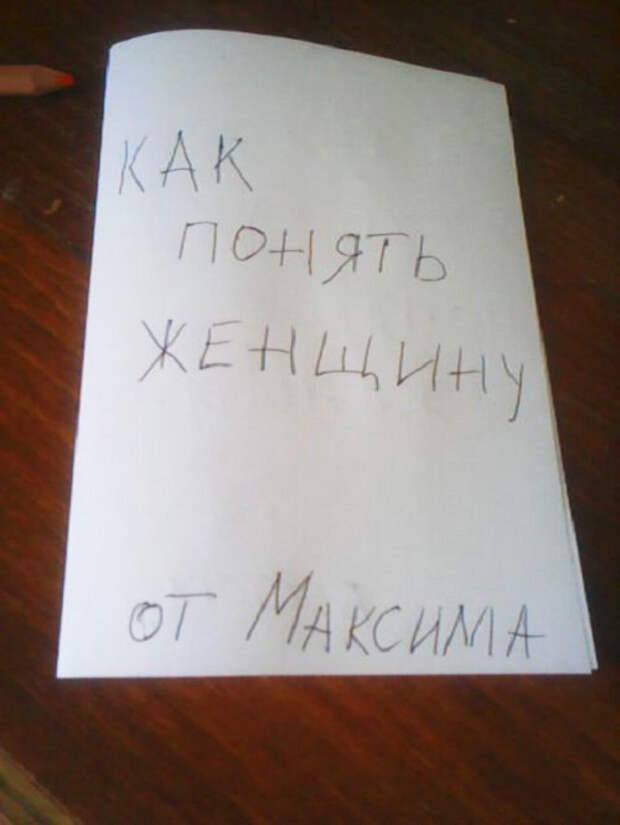 КАК
ПОНЯТЬ
ЖЕНЩИНУ
от Максима